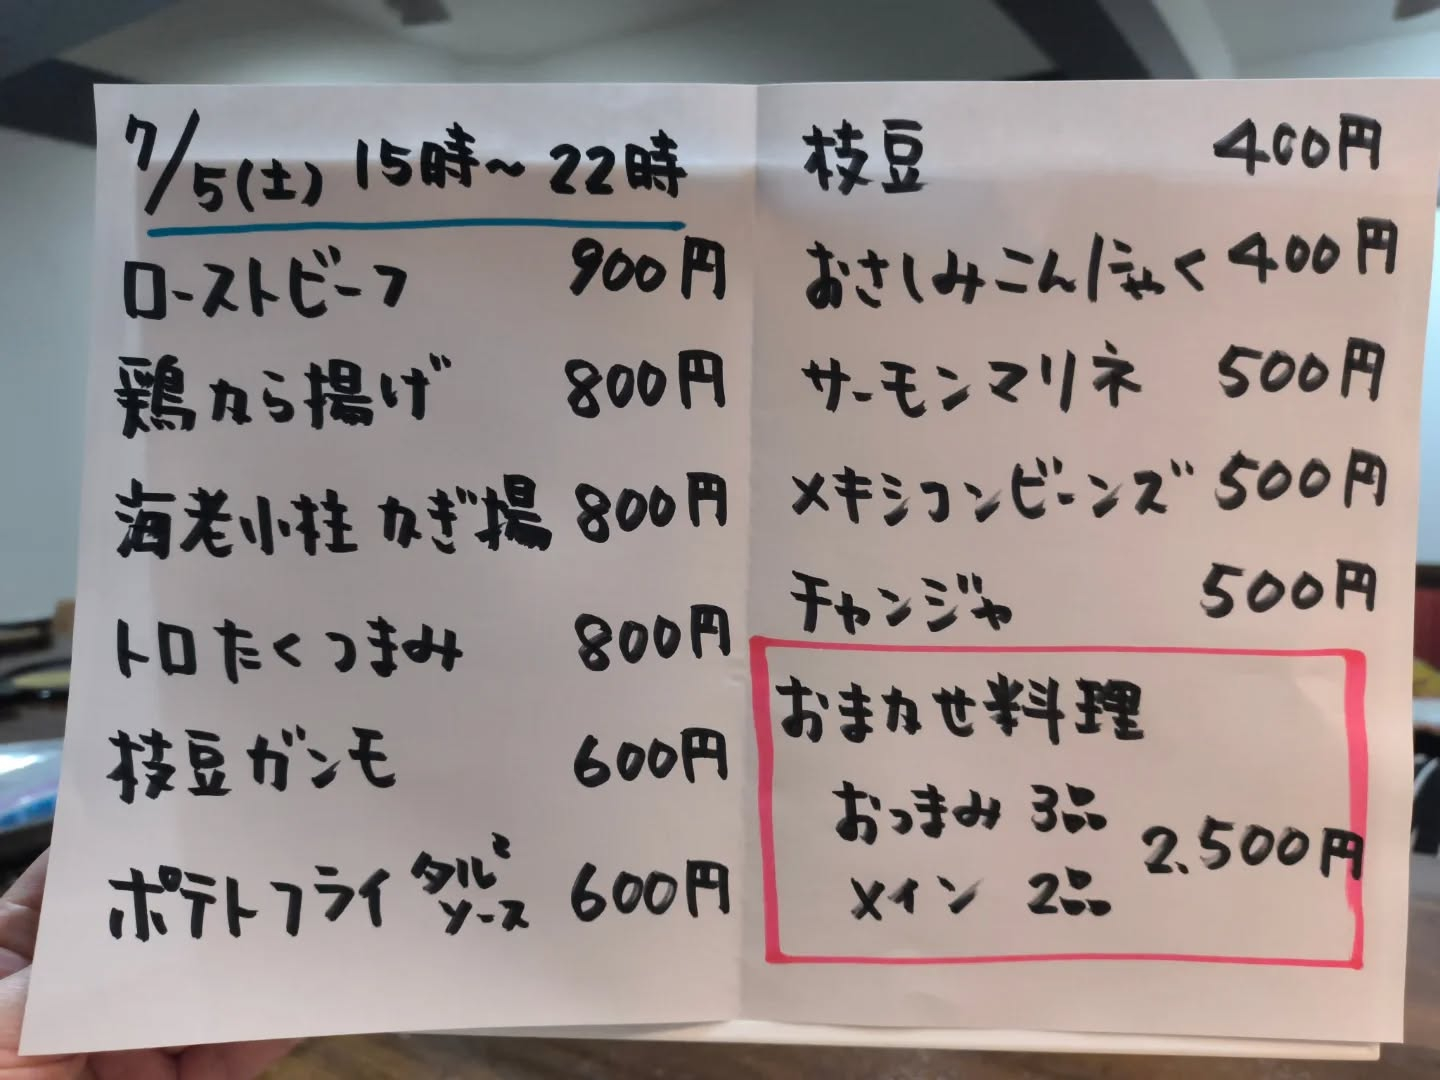 7/5(土) 15時~22時
ローストビーフ 900円
鶏から揚げ 800円
海老小柱かき揚 800円
トロたくつまみ 800円
枝豆ガンモ 600円
ポテトフライ タルタルソース 600円
枝豆 400円
おさしみこんにゃく 400円
サーモンマリネ 500円
メキシコンビーンズ 500円
チャンジャ 500円
おまかせ料理
おつまみ 3品
メイン 2品 2.500円